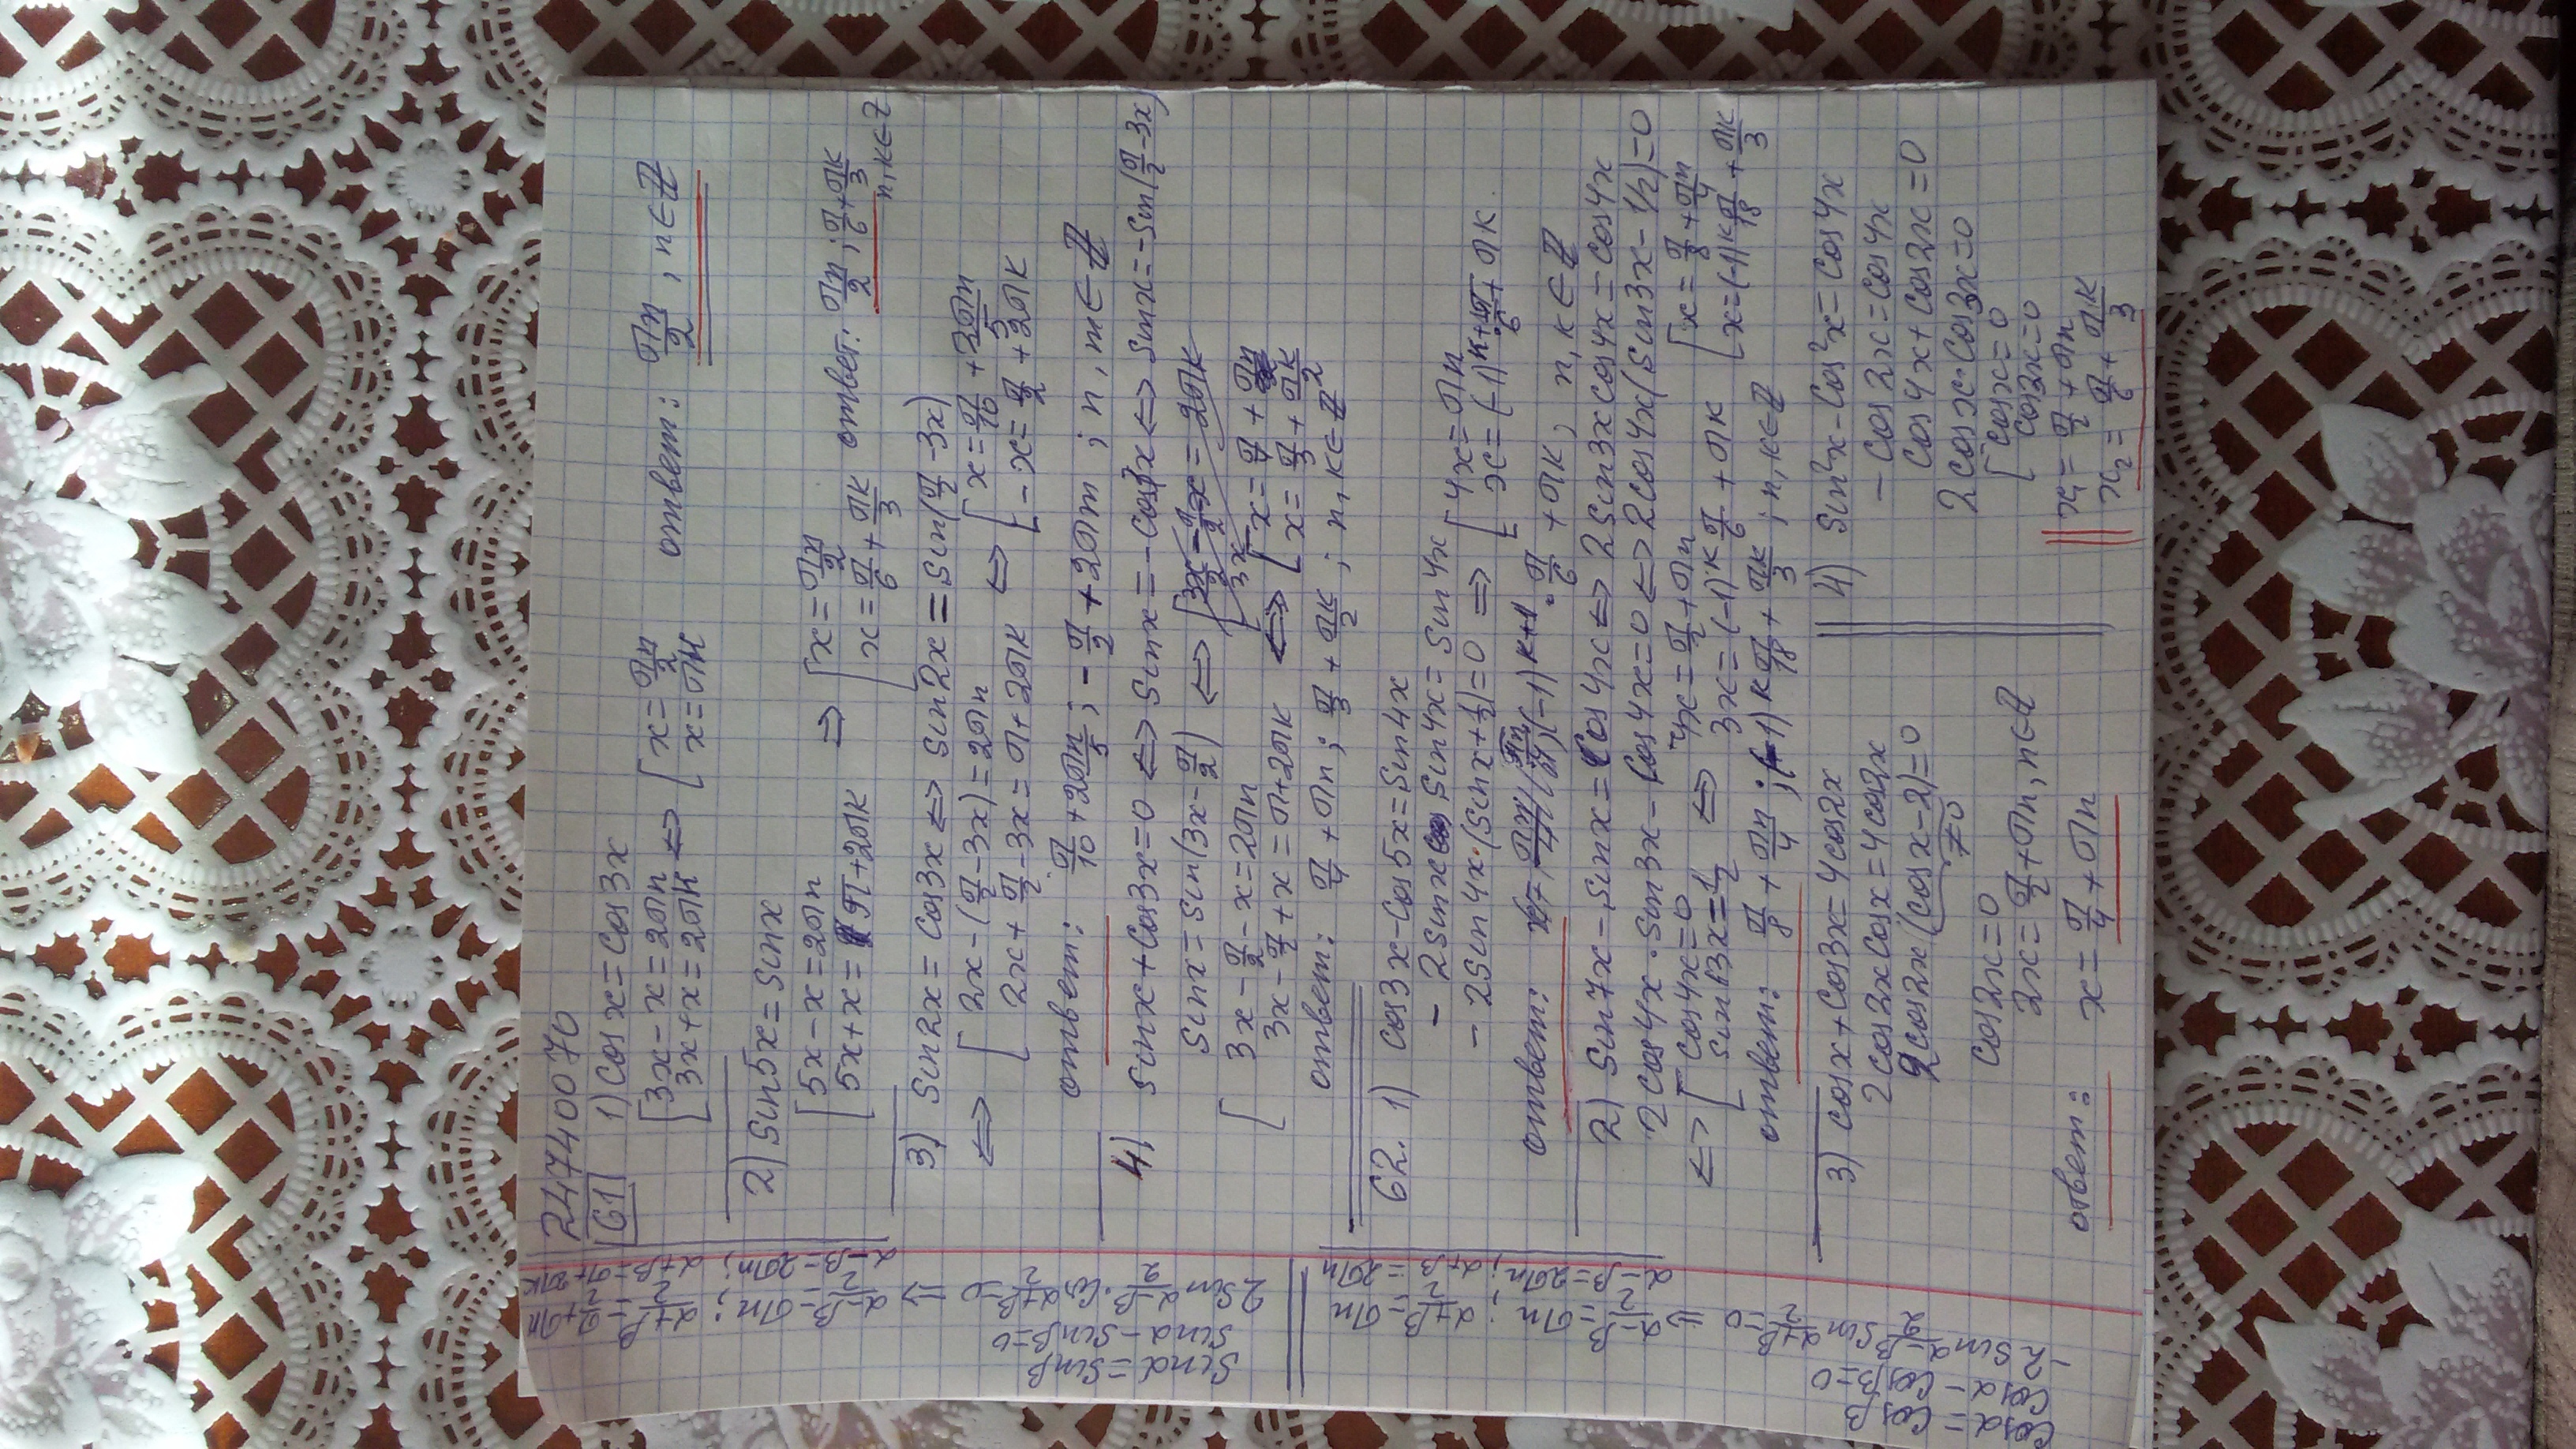 24740070
61 1) cos x = cos 3x
[3x - x = 2πn
[3x + x = 2πk ⇔ [x = πn/2
x = πk ответ: πn/2, n∈Z
2) sin 5x = sin x
[5x - x = 2πn
[5x + x = π + 2πk ⇒ [x = πn/2
x = π/6 + πk/3 ответ: πn/2; π/6 + πk/3
n, k∈Z
3) sin 2x = cos 3x ⇔ sin 2x = sin(π/2 - 3x)
⇔ [2x - (π/2 - 3x) = 2πn
[2x + π/2 - 3x = π + 2πk ⇔ [x = π/10 + 2πn/5
[-x = π/2 + 2πk
ответ: π/10 + 2πn/5; -π/2 + 2πm; n, m∈Z
4) sin x + cos 3x = 0 ⇔ sin x = -cos 3x ⇔ sin x = -sin(π/2 - 3x)
sin x = sin(3x - π/2) ⇔
[3x - π/2 - x = 2πn
3x - π/2 + x = π + 2πk ⇔ [x = π/4 + πn
[x = π/3 + πk/2
ответ: π/4 + πn; π/3 + πk/2; n, k∈Z
62. 1) cos 3x - cos 5x = sin 4x
- 2 sin x sin 4x = sin 4x
- 2 sin 4x·(sin x + 1/2) = 0 ⇒ [4x = πn
[x = (-1)^k+1·π/6 + πk
ответ: πn/4; (-1)^k+1·π/6 + πk, n, k∈Z
2) sin 7x - sin x = cos 4x ⇔ 2 sin 3x cos 4x = cos 4x
2 cos 4x · sin 3x - cos 4x = 0 ⇔ 2 cos 4x (sin 3x - 1/2) = 0
⇔ [cos 4x = 0
[sin 3x = 1/2 ⇔ 4x = π/2 + πn
3x = (-1)^k π/6 + πk [x = π/8 + πn/4
[x = (-1)^k π/18 + πk/3
ответ: π/8 + πn/4; (-1)^k π/18 + πk/3; n, k∈Z
3) cos x + cos 3x = 4 cos 2x
2 cos 2x cos x = 4 cos 2x
2 cos 2x (cos x - 2) = 0
≠0
cos 2x = 0
2x = π/2 + πn, n∈Z
ответ: x = π/4 + πn
4) sin²x - cos²x = cos 4x
- cos 2x = cos 4x
cos 4x + cos 2x = 0
2 cos x · cos 3x = 0
[cos x = 0
cos 3x = 0
x₁ = π/2 + πn
x₂ = π/6 + πk/3
sin α = sin β
sin α - sin β = 0
2 sin (α-β)/2 · cos (α+β)/2 = 0
⇓
(α-β)/2 = πn; (α+β)/2 = π/2 + πn
α - β = 2πn; α + β = π + 2πk
cos α = cos β
cos α - cos β = 0
-2 sin (α-β)/2 sin (α+β)/2 = 0
⇓
(α-β)/2 = πn; (α+β)/2 = πn
α - β = 2πn; α + β = 2πn